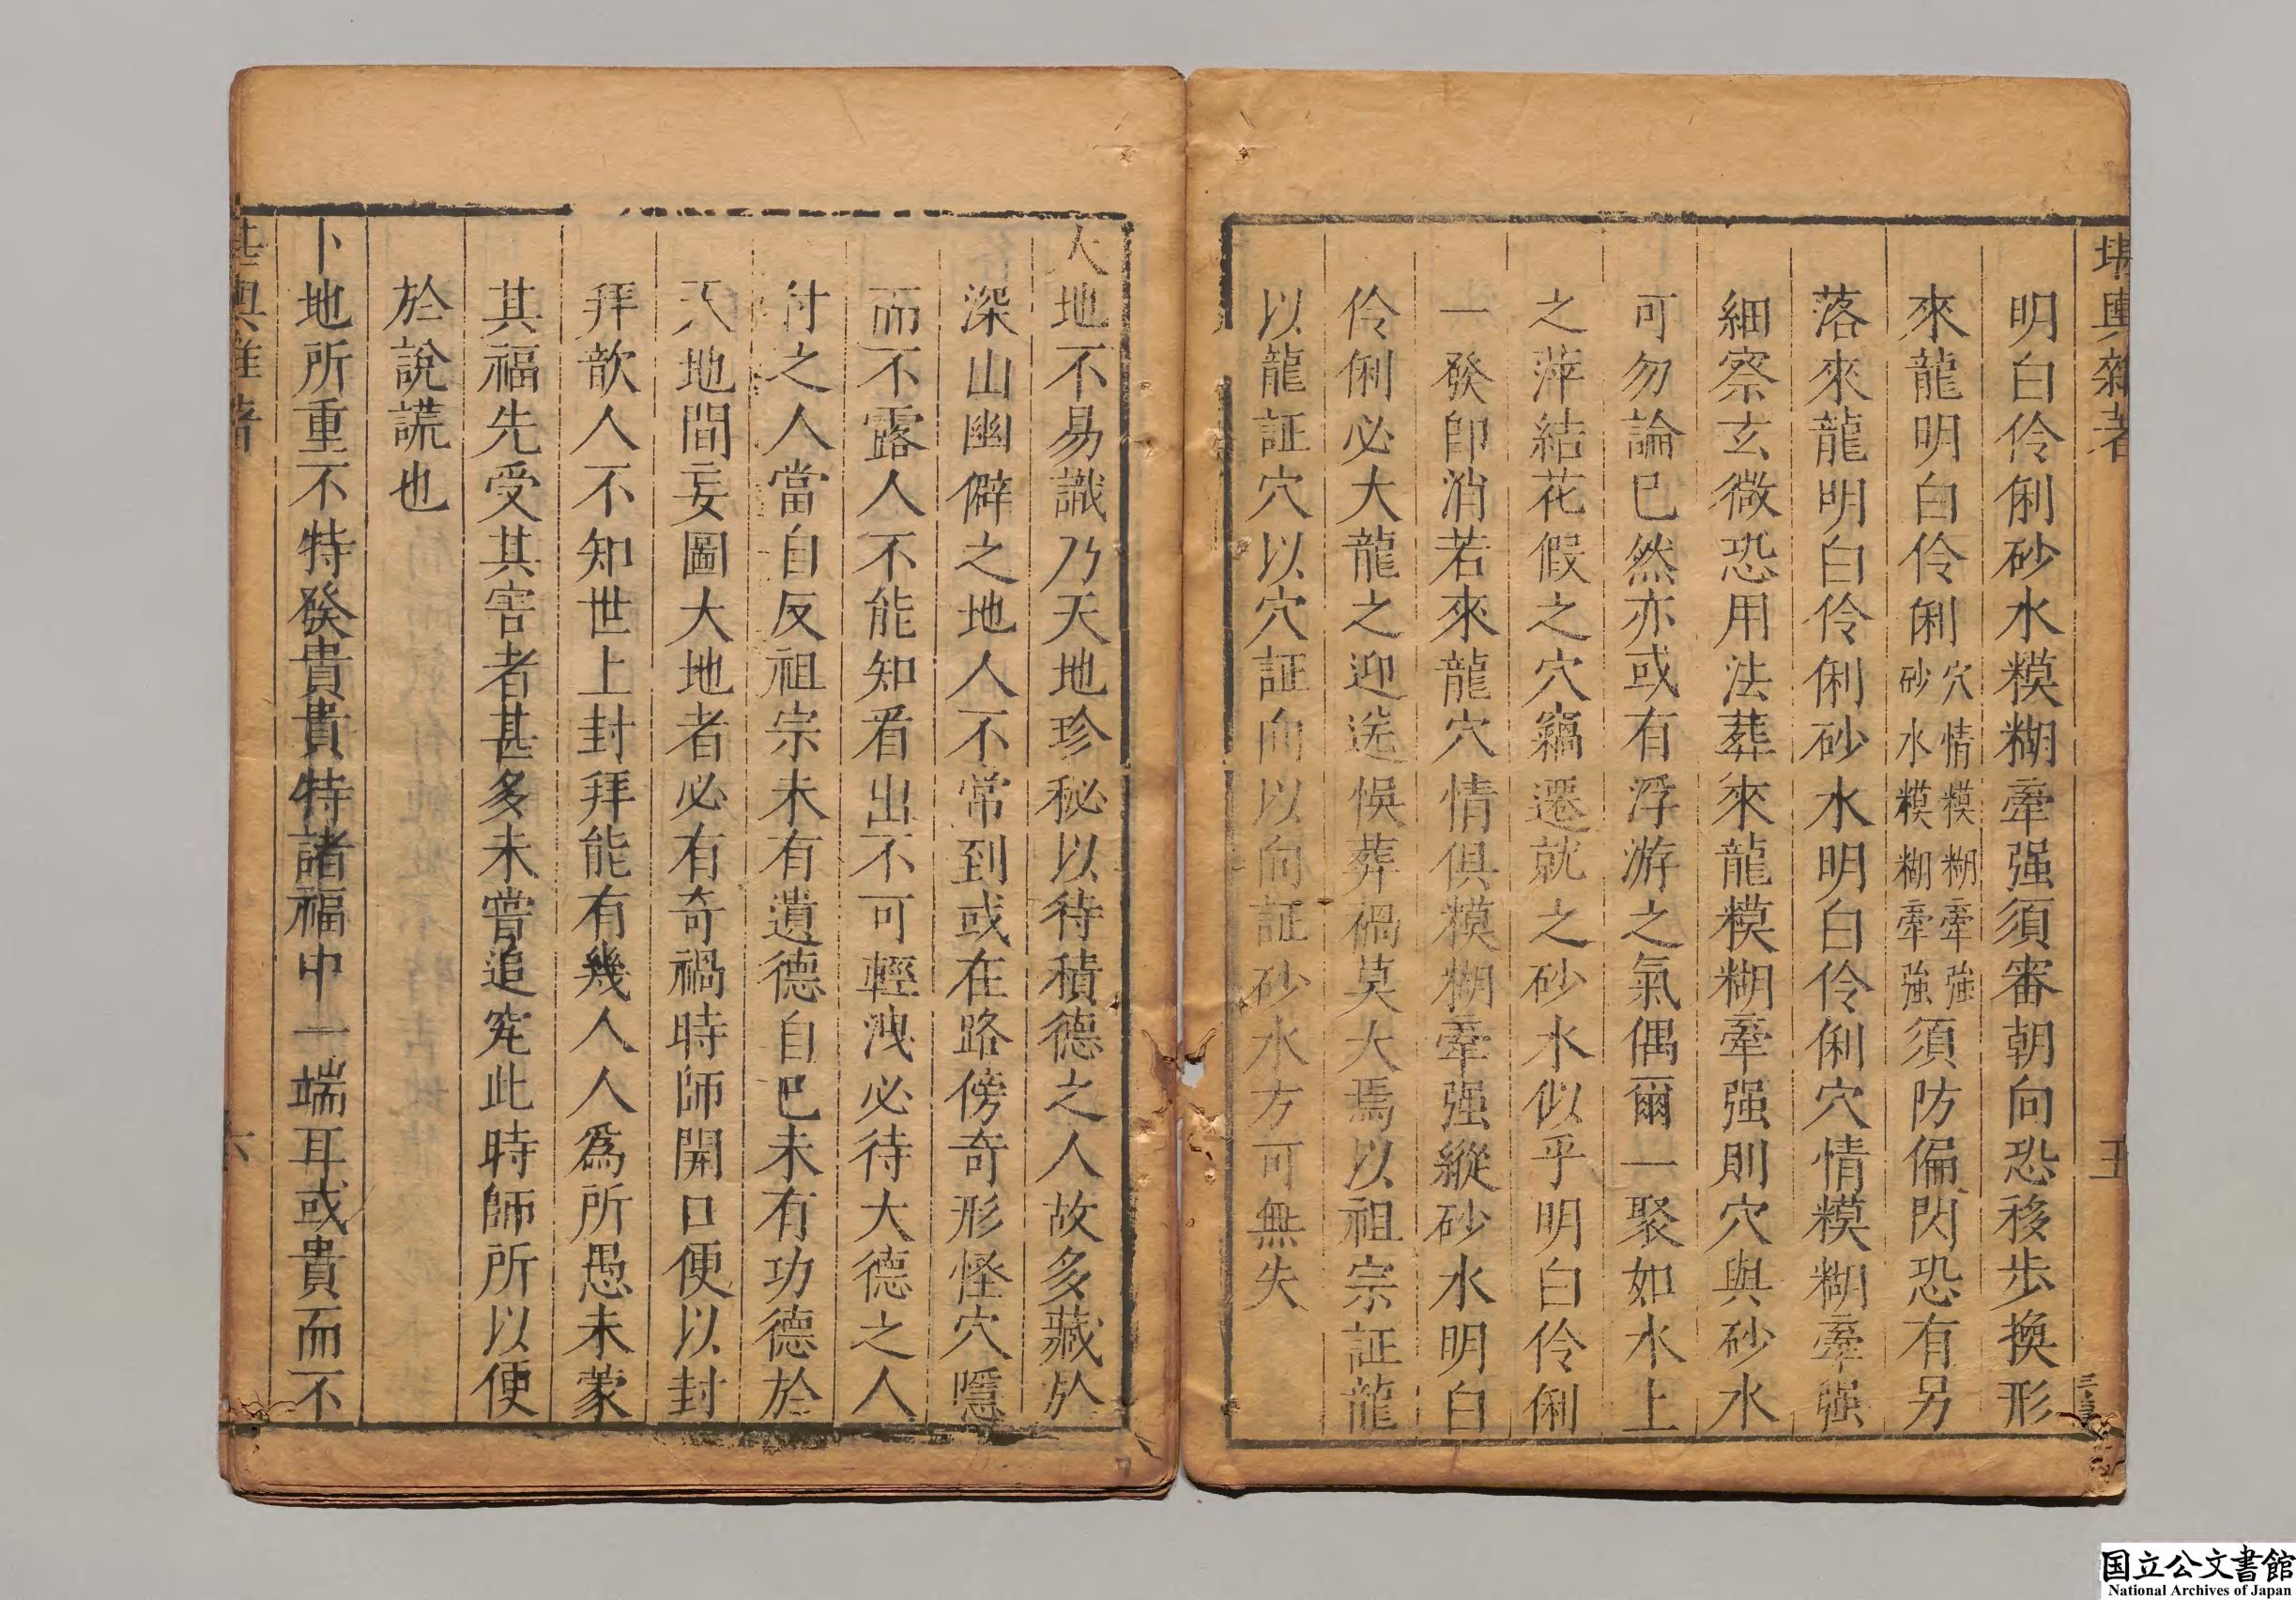 堪輿雜著
五
明白伶俐砂水糢糊牽强須審朝向恐移步換形
來龍明白伶俐穴情糢糊牽強砂水糢糊牽強須防偏閃恐有另
落來龍明白伶俐砂水明白伶俐穴情糢糊牽强
細察玄微恐用法葬來龍糢糊牽强則穴與砂水
可勿論已然亦或有浮游之氣偶爾一聚如水上
之萍結花假之穴竊遷就之砂水似乎明白伶俐
一發卽消若來龍穴情俱糢糊牽强縱砂水明白
伶俐必大龍之迎送悞葬禍莫大焉以祖宗証龍
以龍証穴以穴証向以向証砂水方可無失
大地不易識乃天地珍秘以待積德之人故多藏於
深山幽僻之地人不常到或在路傍奇形怪穴隱
而不露人不能知看出不可輕洩必待大德之人
付之人當自反祖宗未有遺德自巳未有功德於
天地間妄圖大地者必有奇禍時師開口便以封
拜歆人不知世上封拜能有幾人人爲所愚未蒙
其福先受其害者甚多未嘗追究此時師所以便
於說謊也
卜地所重不特發貴貴特諸福中一端耳或貴而不
堪輿雜著
六
国立公文書館
National Archives of Japan